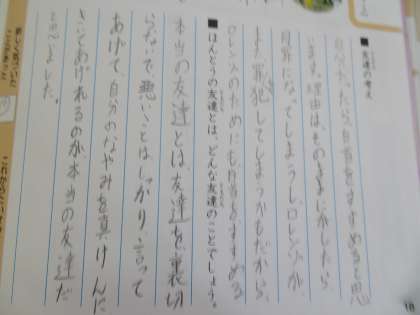 ■友達の考え
自分だったら、自首をすすめると思
います。理由は、そのままにがしたら、
同罪になってしまうし、ロレンゾが、
また罪犯してしまうかもだから、
ロレンゾのためにも自首をすすめる
■ほんとうの友達とは、どんな友達のことでしょう。
本当の友達とは、友達を裏切
らないで悪いことはしっかり言って
あげて、自分のなやみを真けんに
きいてあげれるのが、本当の友達だ
と思いました。